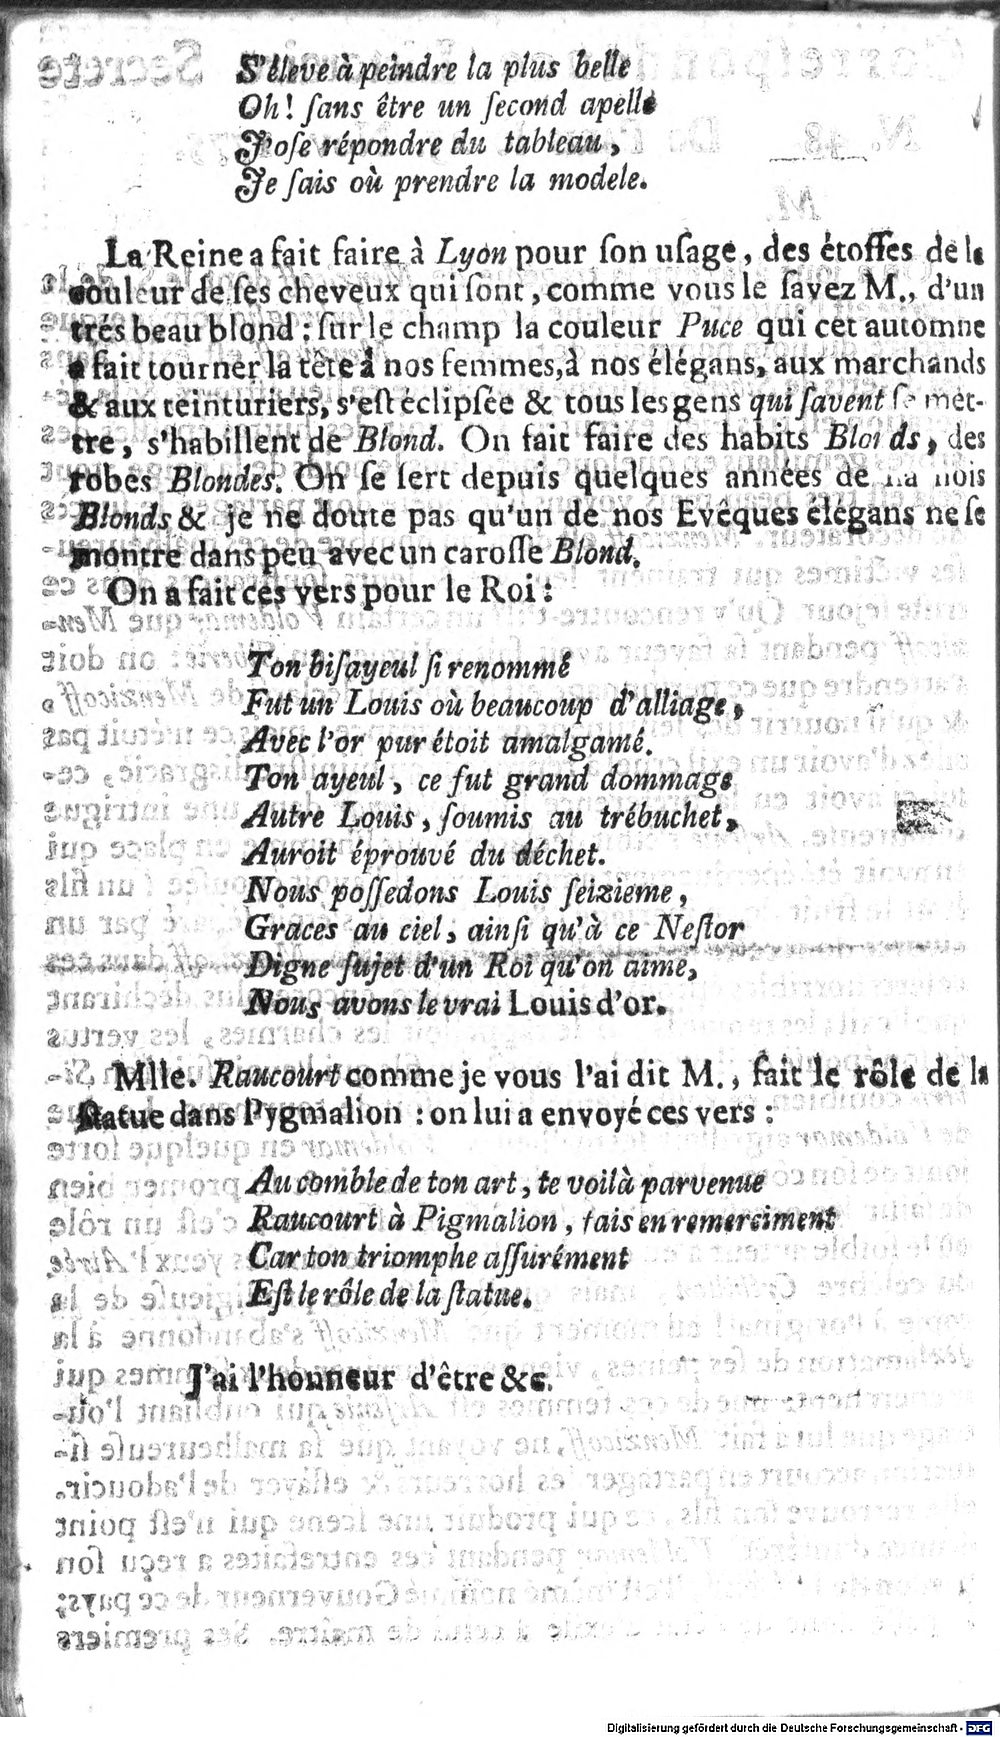 S'éleve à peindre la plus belle
Oh! ſans être un ſecond apelle
J'oſe répondre du tableau,
Je ſais où prendre la modele.
La Reine a fait faire à Lyon pour ſon uſage, des étoffes de la
couleur de ſes cheveux qui ſont, comme vous le ſavez M., d'un
trés beau blond: ſur le champ la couleur Puce qui cet automne
a fait tourner la tête à nos femmes, à nos élégans, aux marchands
& aux teinturiers, s'eſt éclipſée & tous les gens qui ſavent ſe met-
tre, s'habillent de Blond. On fait faire des habits Blonds, des
robes Blondes. On ſe ſert depuis quelques années de harnois
Blonds & je ne doute pas qu'un de nos Evêques élégans ne ſe
montre dans peu avec un caroſſe Blond.
On a fait ces vers pour le Roi:
Ton biſayeul ſi renommé
Fut un Louis où beaucoup d'alliage,
Avec l'or pur étoit amalgamé.
Ton ayeul, ce fut grand dommage
Autre Louis, ſoumis au trébuchet,
Auroit éprouvé du déchet.
Nous poſſedons Louis ſeizieme,
Graces au ciel, ainſi qu'à ce Neſtor
Digne ſujet d'un Roi qu'on aime,
Nous avons le vrai Louis d'or.
Mlle. Raucourt comme je vous l'ai dit M., fait le rôle de la
ſtatue dans Pygmalion: on lui a envoyé ces vers:
Au comble de ton art, te voilà parvenue
Raucourt à Pigmalion, fais en remerciment
Car ton triomphe aſſurément
Eſt le rôle de la ſtatue.
J'ai l'honneur d'être &c.
Digitalisierung gefördert durch die Deutsche Forschungsgemeinschaft - DFG